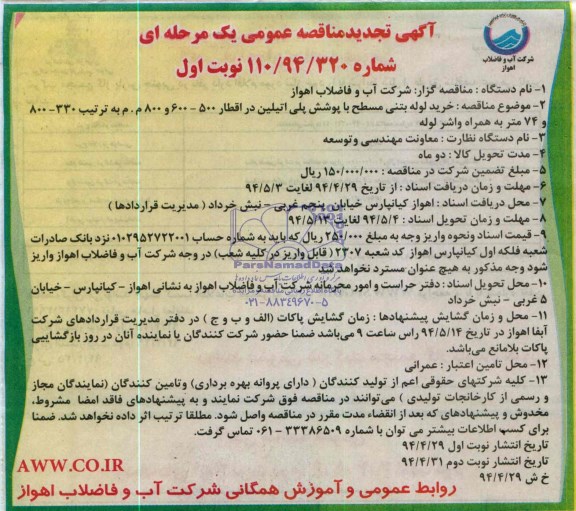 آگهی تجدیدمناقصه عمومی یک مرحله ای
شماره ۱۱۰/۹۴/۳۲۰ نوبت اول
شرکت آب و فاضلاب
اهواز
۱- نام دستگاه : مناقصه گزار: شرکت آب و فاضلاب اهواز
۲- موضوع مناقصه : خرید لوله بتنی مسطح با پوشش پلی اتیلین در اقطار ۵۰۰ - ۶۰۰ و ۸۰۰ م . م به ترتیب ۳۳۰- ۸۰۰
و ۷۴ متر به همراه واشر لوله
۳- نام دستگاه نظارت : معاونت مهندسی وتوسعه
۴- مدت تحویل کالا : دو ماه
۵- مبلغ تضمین شرکت در مناقصه : ۱۵۰/۰۰۰/۰۰۰ ریال
۶- مهلت و زمان دریافت اسناد : از تاریخ ۹۴/۴/۲۹ لغایت ۹۴/۵/۳
۷- محل دریافت اسناد : اهواز کیانپارس خیابان پنجم غربی - نبش خرداد ( مدیریت قراردادها )
۸- مهلت و زمان تحویل اسناد : ۹۴/۵/۴ لغایت ۹۴/۵/۱۳
۹- قیمت اسناد ونحوه واریز وجه به مبلغ ۲۵۰/۰۰۰ ریال که باید به شماره حساب ۰۱۰۲۹۵۲۷۲۲۰۰۱ نزد بانک صادرات
شعبه فلکه اول کیانپارس اهواز کد شعبه ۲۳۰۷ (قابل واریز در کلیه شعب) در وجه شرکت آب و فاضلاب اهواز واریز
شود وجه مذکور به هیچ عنوان مسترد نخواهد شد
۱۰- محل تحویل اسناد : دفتر حراست و امور محرمانه شرکت آب و فاضلاب اهواز به نشانی اهواز - کیانپارس - خیابان
۵ غربی - نبش خرداد
۱۱- محل و زمان گشایش پیشنهادها : زمان گشایش پاکات (الف و ب و ج ) در دفتر مدیریت قراردادهای شرکت
آبفا اهواز در تاریخ ۹۴/۵/۱۴ راس ساعت ۹ می‌باشد ضمنا حضور شرکت کنندگان یا نماینده آنان در روز بازگشایی
پاکات بلامانع می‌باشد.
۱۲- محل تامین اعتبار : عمرانی
۱۳- کلیه شرکتهای حقوقی اعم از تولید کنندگان ( دارای پروانه بهره برداری) وتامین کنندگان (نمایندگان مجاز
و رسمی از کارخانجات تولیدی ) می‌توانند در مناقصه فوق شرکت نمایند و به پیشنهادهای فاقد امضا مشروط،
مخدوش و پیشنهادهای که بعد از انقضاء مدت مقرر در مناقصه واصل شود. مطلقا ترتیب اثر داده نخواهد شد. ضمنا
برای کسب اطلاعات بیشتر می توان با شماره ۳۳۳۸۶۵۰۹ - ۰۶۱ تماس گرفت.
تاریخ انتشار نوبت اول ۹۴/۴/۲۹
تاریخ انتشار نوبت دوم ۹۴/۴/۳۱
خ ش ۹۴/۴/۲۹
AWW.CO.IR
روابط عمومی و آموزش همگانی شرکت آب و فاضلاب اهواز
ParsNamadData
۰۲۱-۸۸۳۴۹۶۷۰-۵